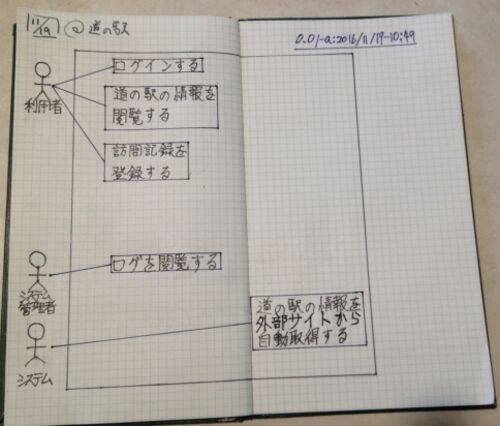 11/19 @道の駅
0.01-a:2016/11/19-10:49
利用者
ログインする
道の駅の情報を
閲覧する
訪問記録を
登録する
システム
管理者
ログを閲覧する
システム
道の駅の情報を
外部サイトから
自動取得する